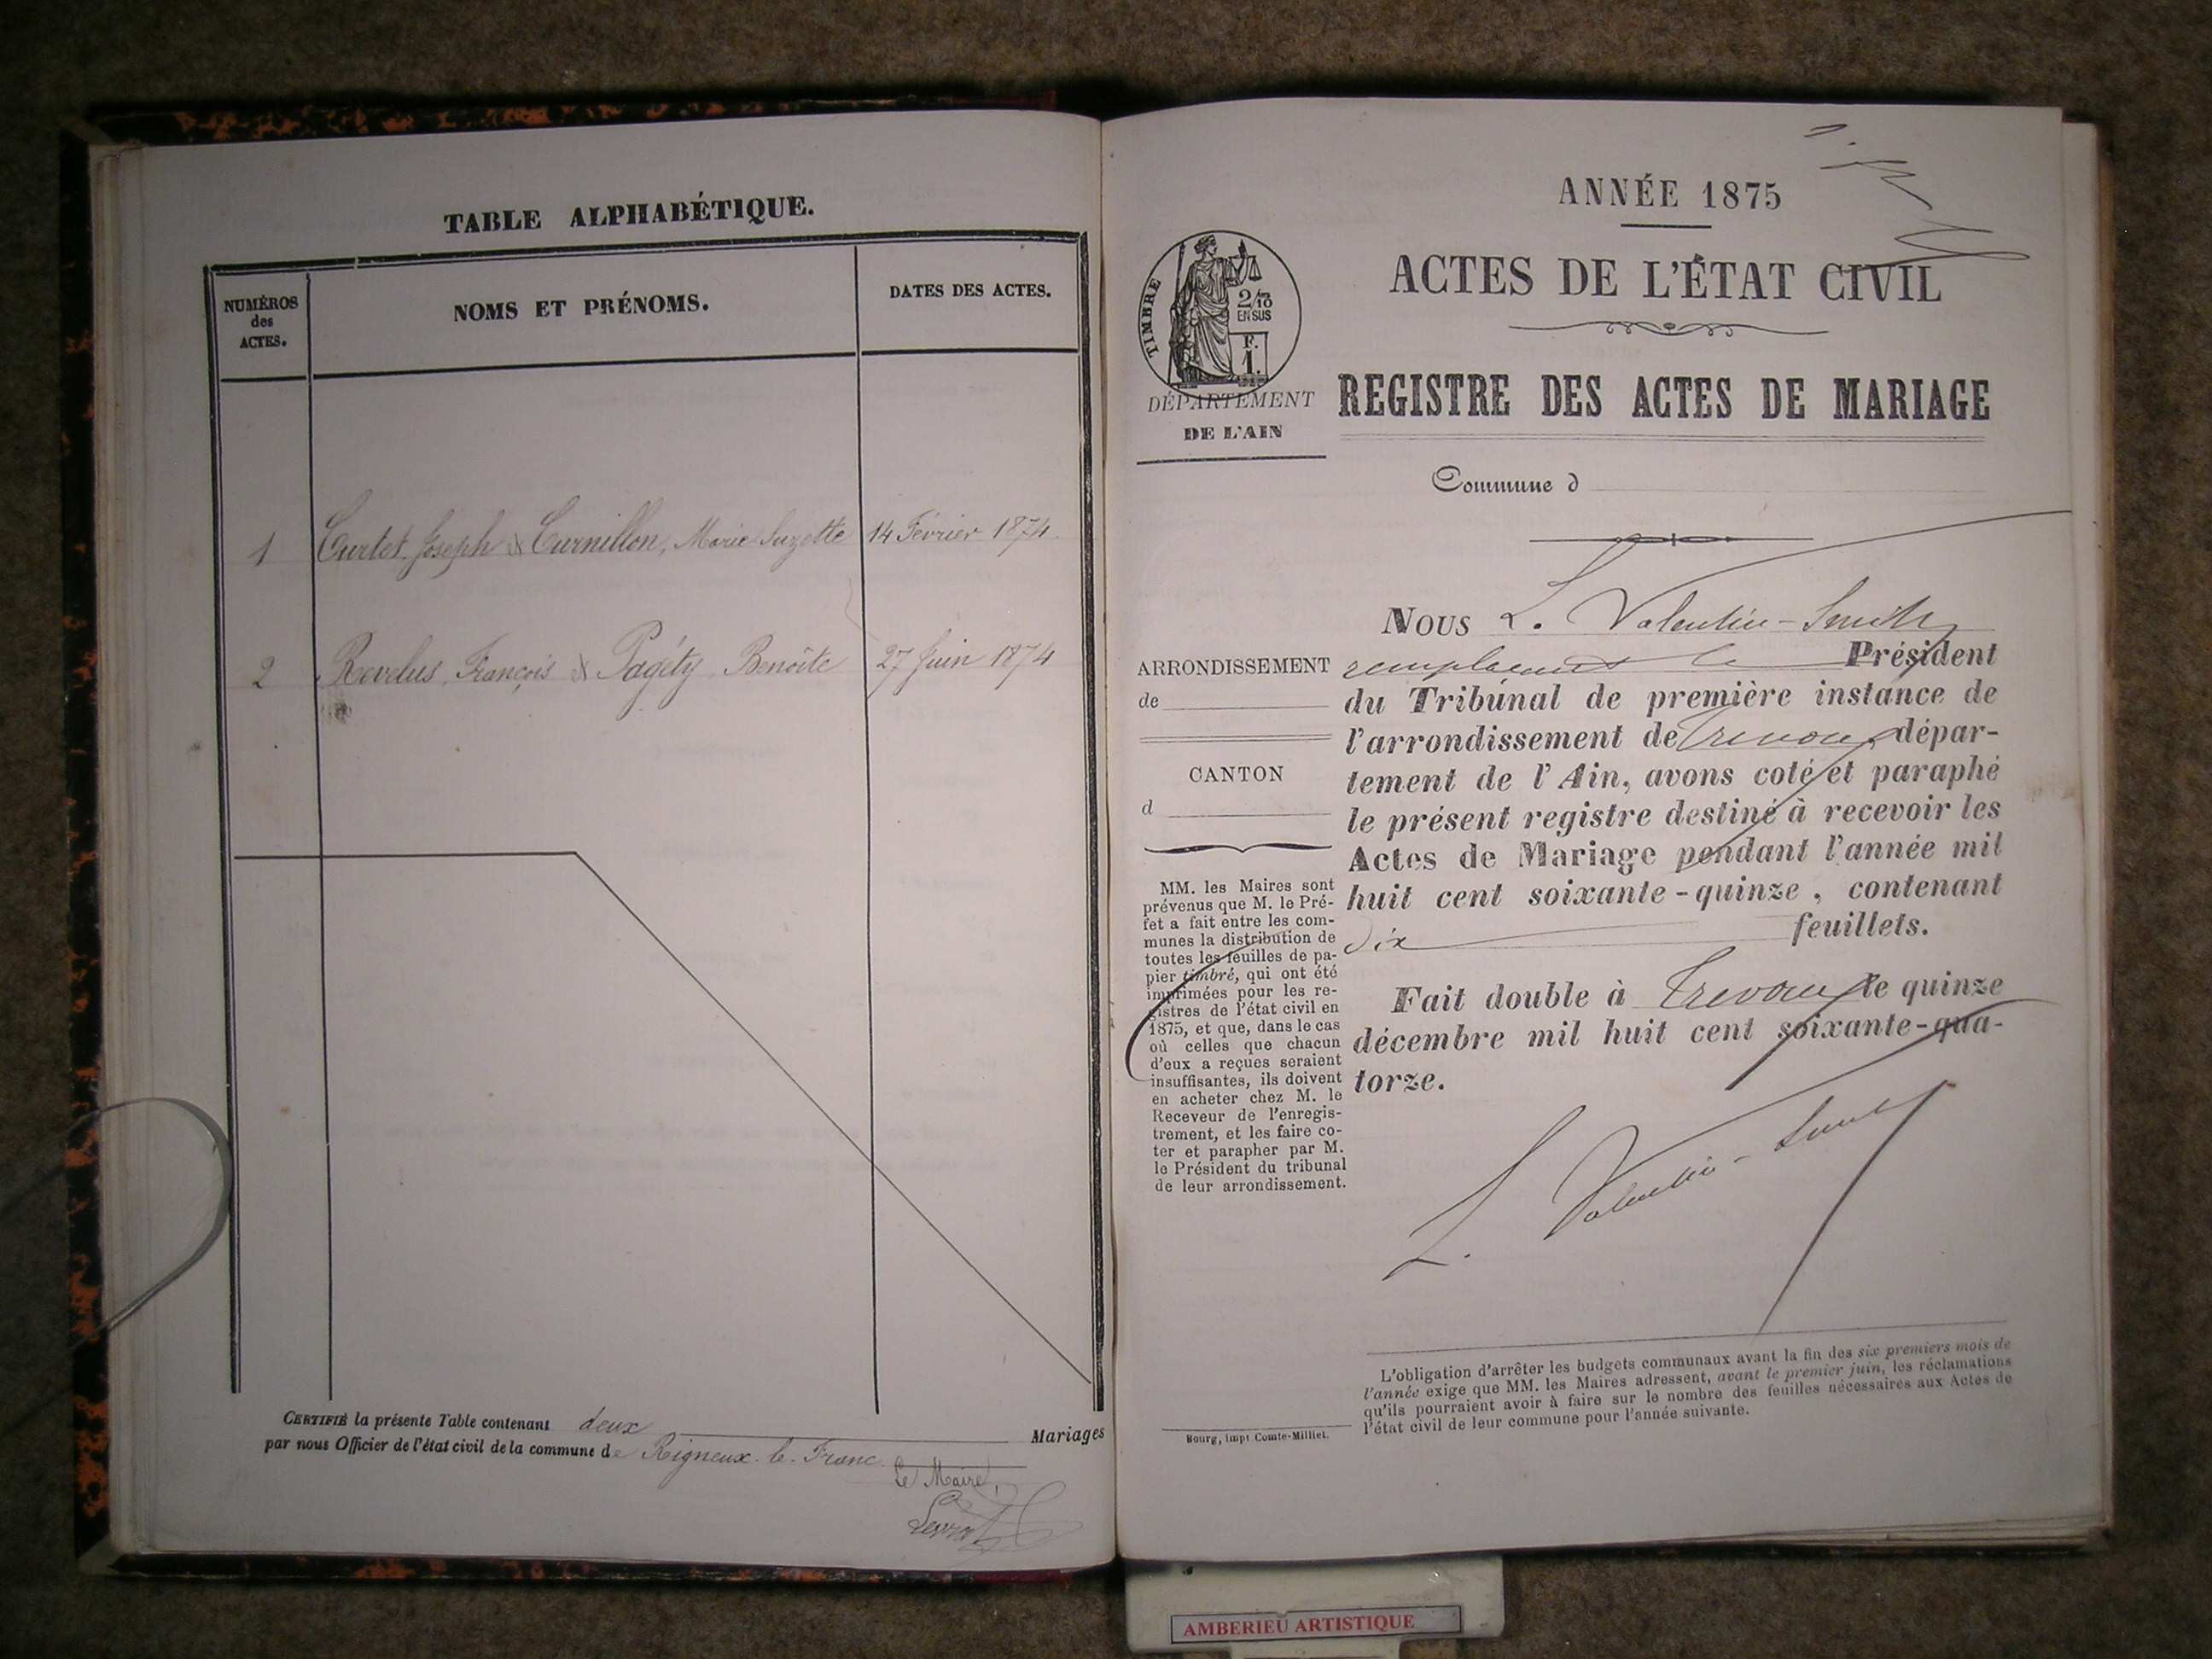 TABLE ALPHABÉTIQUE.
NUMÉROS
des
ACTES.
NOMS ET PRÉNOMS.
DATES DES ACTES.
1 Curtet, Joseph & Curnillon, Marie Suzette 14 Février 1874
2 Revelus, François & Pagéty Benoîte 27 Juin 1874
CERTIFIÉ la présente Table contenant deux Mariages
par nous Officier de l'état civil de la commune de Rigneux-le-Franc
Le Maire,
ANNÉE 1875
ACTES DE L'ÉTAT CIVIL
TIMBRE
2/10
EN SUS
F.
1.
DÉPARTEMENT
DE L'AIN
REGISTRE DES ACTES DE MARIAGE
Commune d
ARRONDISSEMENT
de
CANTON
d
MM. les Maires sont
prévenus que M. le Pré-
fet a fait entre les com-
munes la distribution de
toutes les feuilles de pa-
pier timbré, qui ont été
imprimées pour les re-
gistres de l'état civil en
1875, et que, dans le cas
où celles que chacun
d'eux a reçues seraient
insuffisantes, ils doivent
en acheter chez M. le
Receveur de l'enregis-
trement, et les faire co-
ter et parapher par M.
le Président du tribunal
de leur arrondissement.
Nous L. Valentin-Smith
remplaçant le Président
du Tribunal de première instance de
l'arrondissement de Trevoux, dépar-
tement de l'Ain, avons coté et paraphé
le présent registre destiné à recevoir les
Actes de Mariage pendant l'année mil
huit cent soixante-quinze, contenant
dix feuillets.
Fait double à Trevoux le quinze
décembre mil huit cent soixante-qua-
torze.
L. Valentin-Smith
L'obligation d'arrêter les budgets communaux avant la fin des six premiers mois de
l'année exige que MM. les Maires adressent, avant le premier juin, les réclamations
qu'ils pourraient avoir à faire sur le nombre des feuilles nécessaires aux Actes de
l'état civil de leur commune pour l'année suivante.
Bourg, impt Comte-Milliet.
AMBERIEU ARTISTIQUE